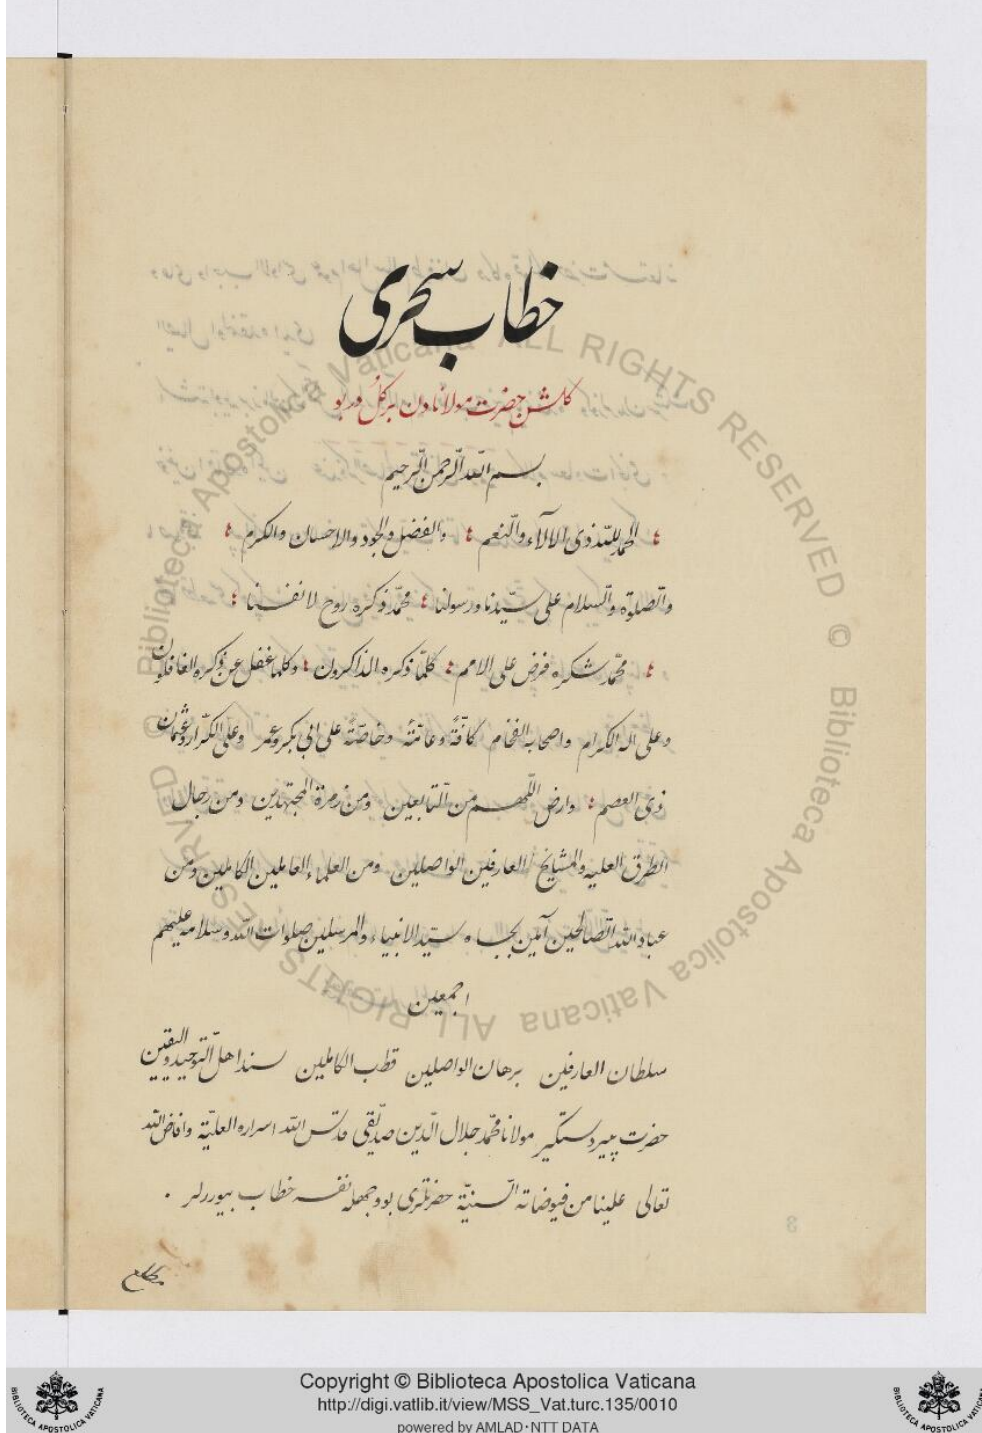 خطاب سحری
كلشن حضرت مولانادن بركل در بو
بسم الله الرحمن الرحيم
؛ الحمد لله ذوی الالآء والنعم ؛ والفضل والجود والاحسان والكرم ؛
والصلوة والسلام علی سيدنا ورسولنا ؛ محمد ذكره روح لانفسنا ؛
؛ محمد شكره فرض علی الامم ؛ كلما ذكره الذاكرون ؛ وكلما غفل عن ذكره الغافلون
وعلی اله الكرام واصحابه الفخام كافةً وعامةً وخاصةً علی ابی بكر وعمر وعلی الكرار وعثمان
ذوی العصم ؛ وارض اللهم من التابعين ومن زمرة المجتهدين ومن رجال
الطرق العليه والمشايخ العارفين الواصلين ومن العلماء العاملين الكاملين ومن
عباد الله الصالحين آمين بجاه سيد الانبياء والمرسلين صلوات الله وسلامه عليهم
اجمعين
سلطان العارفين برهان الواصلين قطب الكاملين سند اهل التوحيد واليقين
حضرت پير دستكير مولانا محمد جلال الدين صديقی قدس الله اسراره العلية وافاض الله
تعالی علينا من فيوضاته السنية حضرتلری بو وجهله نفسه خطاب بيوررلر .
Copyright © Biblioteca Apostolica Vaticana
http://digi.vatlib.it/view/MSS_Vat.turc.135/0010
powered by AMLAD·NTT DATA
BIBLIOTECA APOSTOLICA VATICANA
BIBLIOTECA APOSTOLICA VATICANA
Biblioteca Apostolica Vaticana ALL RIGHTS RESERVED © Biblioteca Apostolica Vaticana ALL RIGHTS RESERVED ©